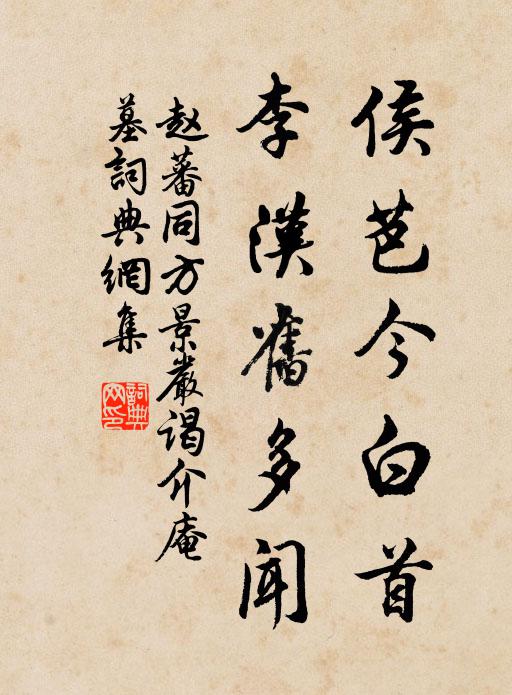 侯芭今白首
李漢舊多聞
赵蕃同方景嚴谒介庵
墓詞典網集
詞典网印